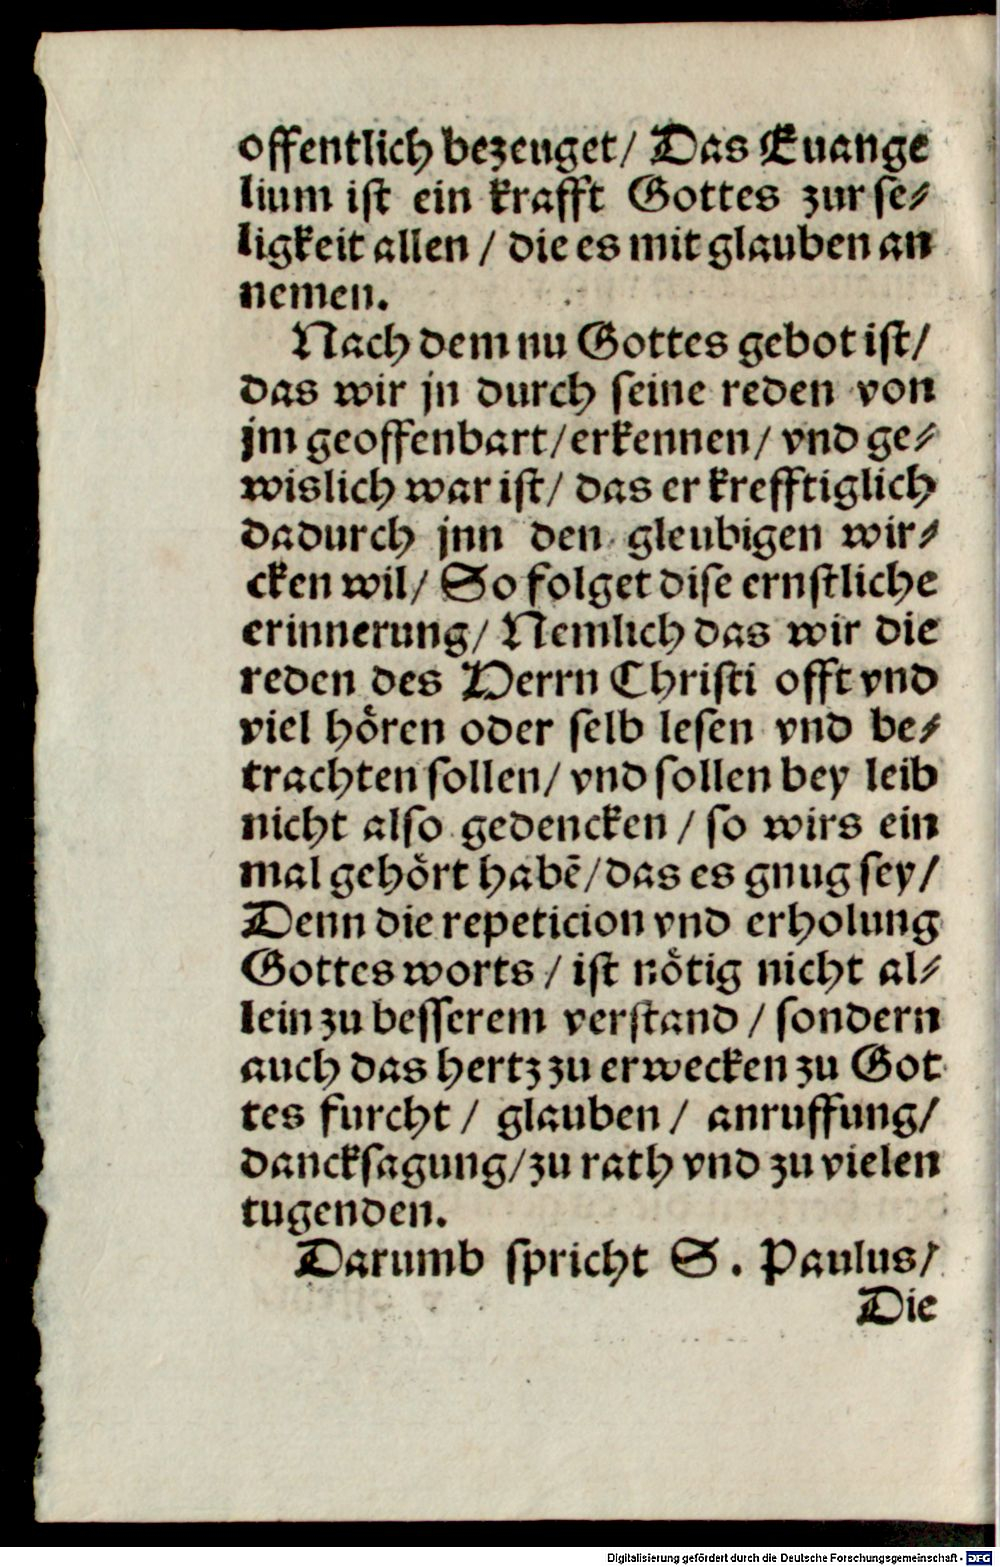 offentlich bezeuget/ Das Euange
lium ist ein krafft Gottes zur se⸗
ligkeit allen / die es mit glauben an
nemen.
Nach dem nu Gottes gebot ist/
das wir jn durch seine reden von
jm geoffenbart/erkennen/ vnd ge⸗
wislich war ist/ das er krefftiglich
dadurch jnn den gleubigen wir⸗
cken wil/ So folget dise ernstliche
erinnerung/ Nemlich das wir die
reden des Herrn Christi offt vnd
viel hoͤren oder selb lesen vnd be⸗
trachten sollen/ vnd sollen bey leib
nicht also gedencken / so wirs ein
mal gehoͤrt habē/das es gnug sey/
Denn die repeticion vnd erholung
Gottes worts / ist noͤtig nicht al⸗
lein zu besserem verstand / sondern
auch das hertz zu erwecken zu Got
tes furcht / glauben / anruffung/
dancksagung/zu rath vnd zu vielen
tugenden.
Darumb spricht S. Paulus/
Die
Digitalisierung gefördert durch die Deutsche Forschungsgemeinschaft - DFG